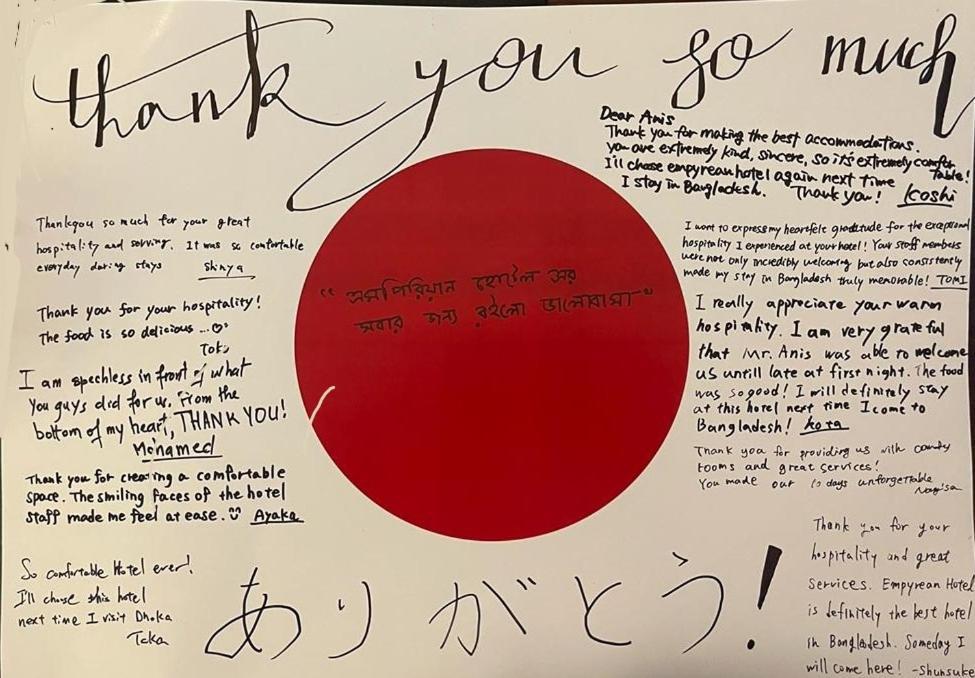 thank you so much
Dear Anis
Thank you for making the best accommodations.
you are extremely kind, sincere, so it's extremely comfor
table!
I'll chose empyrean hotel again next time
I stay in Bangladesh. Thank you! Koshi
Thankyou so much for your great
hospitality and serving. It was so comfortable
everyday during stays Shinya
I want to express my heartfelt gratitude for the exceptional
hospitality I experienced at your hotel! Your staff members
were not only incredibly welcoming but also consistently
made my stay in Bangladesh truly memorable! TOMI
Thank you for your hospitality!
The food is so delicious ...♡
Toki
I really appreciate your warm
hospitality. I am very grateful
that Mr. Anis was able to welcome
us untill late at first night. The food
was so good! I will definitely stay
at this hotel next time I come to
Bangladesh! kota
"এমপিরিয়ান হোটেল এর
সবার জন্য রইলো ভালোবাসা"
I am speechless in front of what
You guys did for us. From the
bottom of my heart, THANK YOU!
Mohamed
Thank you for creating a comfortable
space. The smiling faces of the hotel
staff made me feel at ease. Ayaka
Thank you for providing us with
rooms and great services!
You made our 10 days unforgettable
Nagisa
So comfortable Hotel ever!
I'll chose this hotel
next time I visit Dhaka
Taka
Thank you for your
hospitality and great
Services. Empyrean Hotel
is definitely the best hotel
in Bangladesh. Someday I
will come here! -Shunsuke
ありがとう!